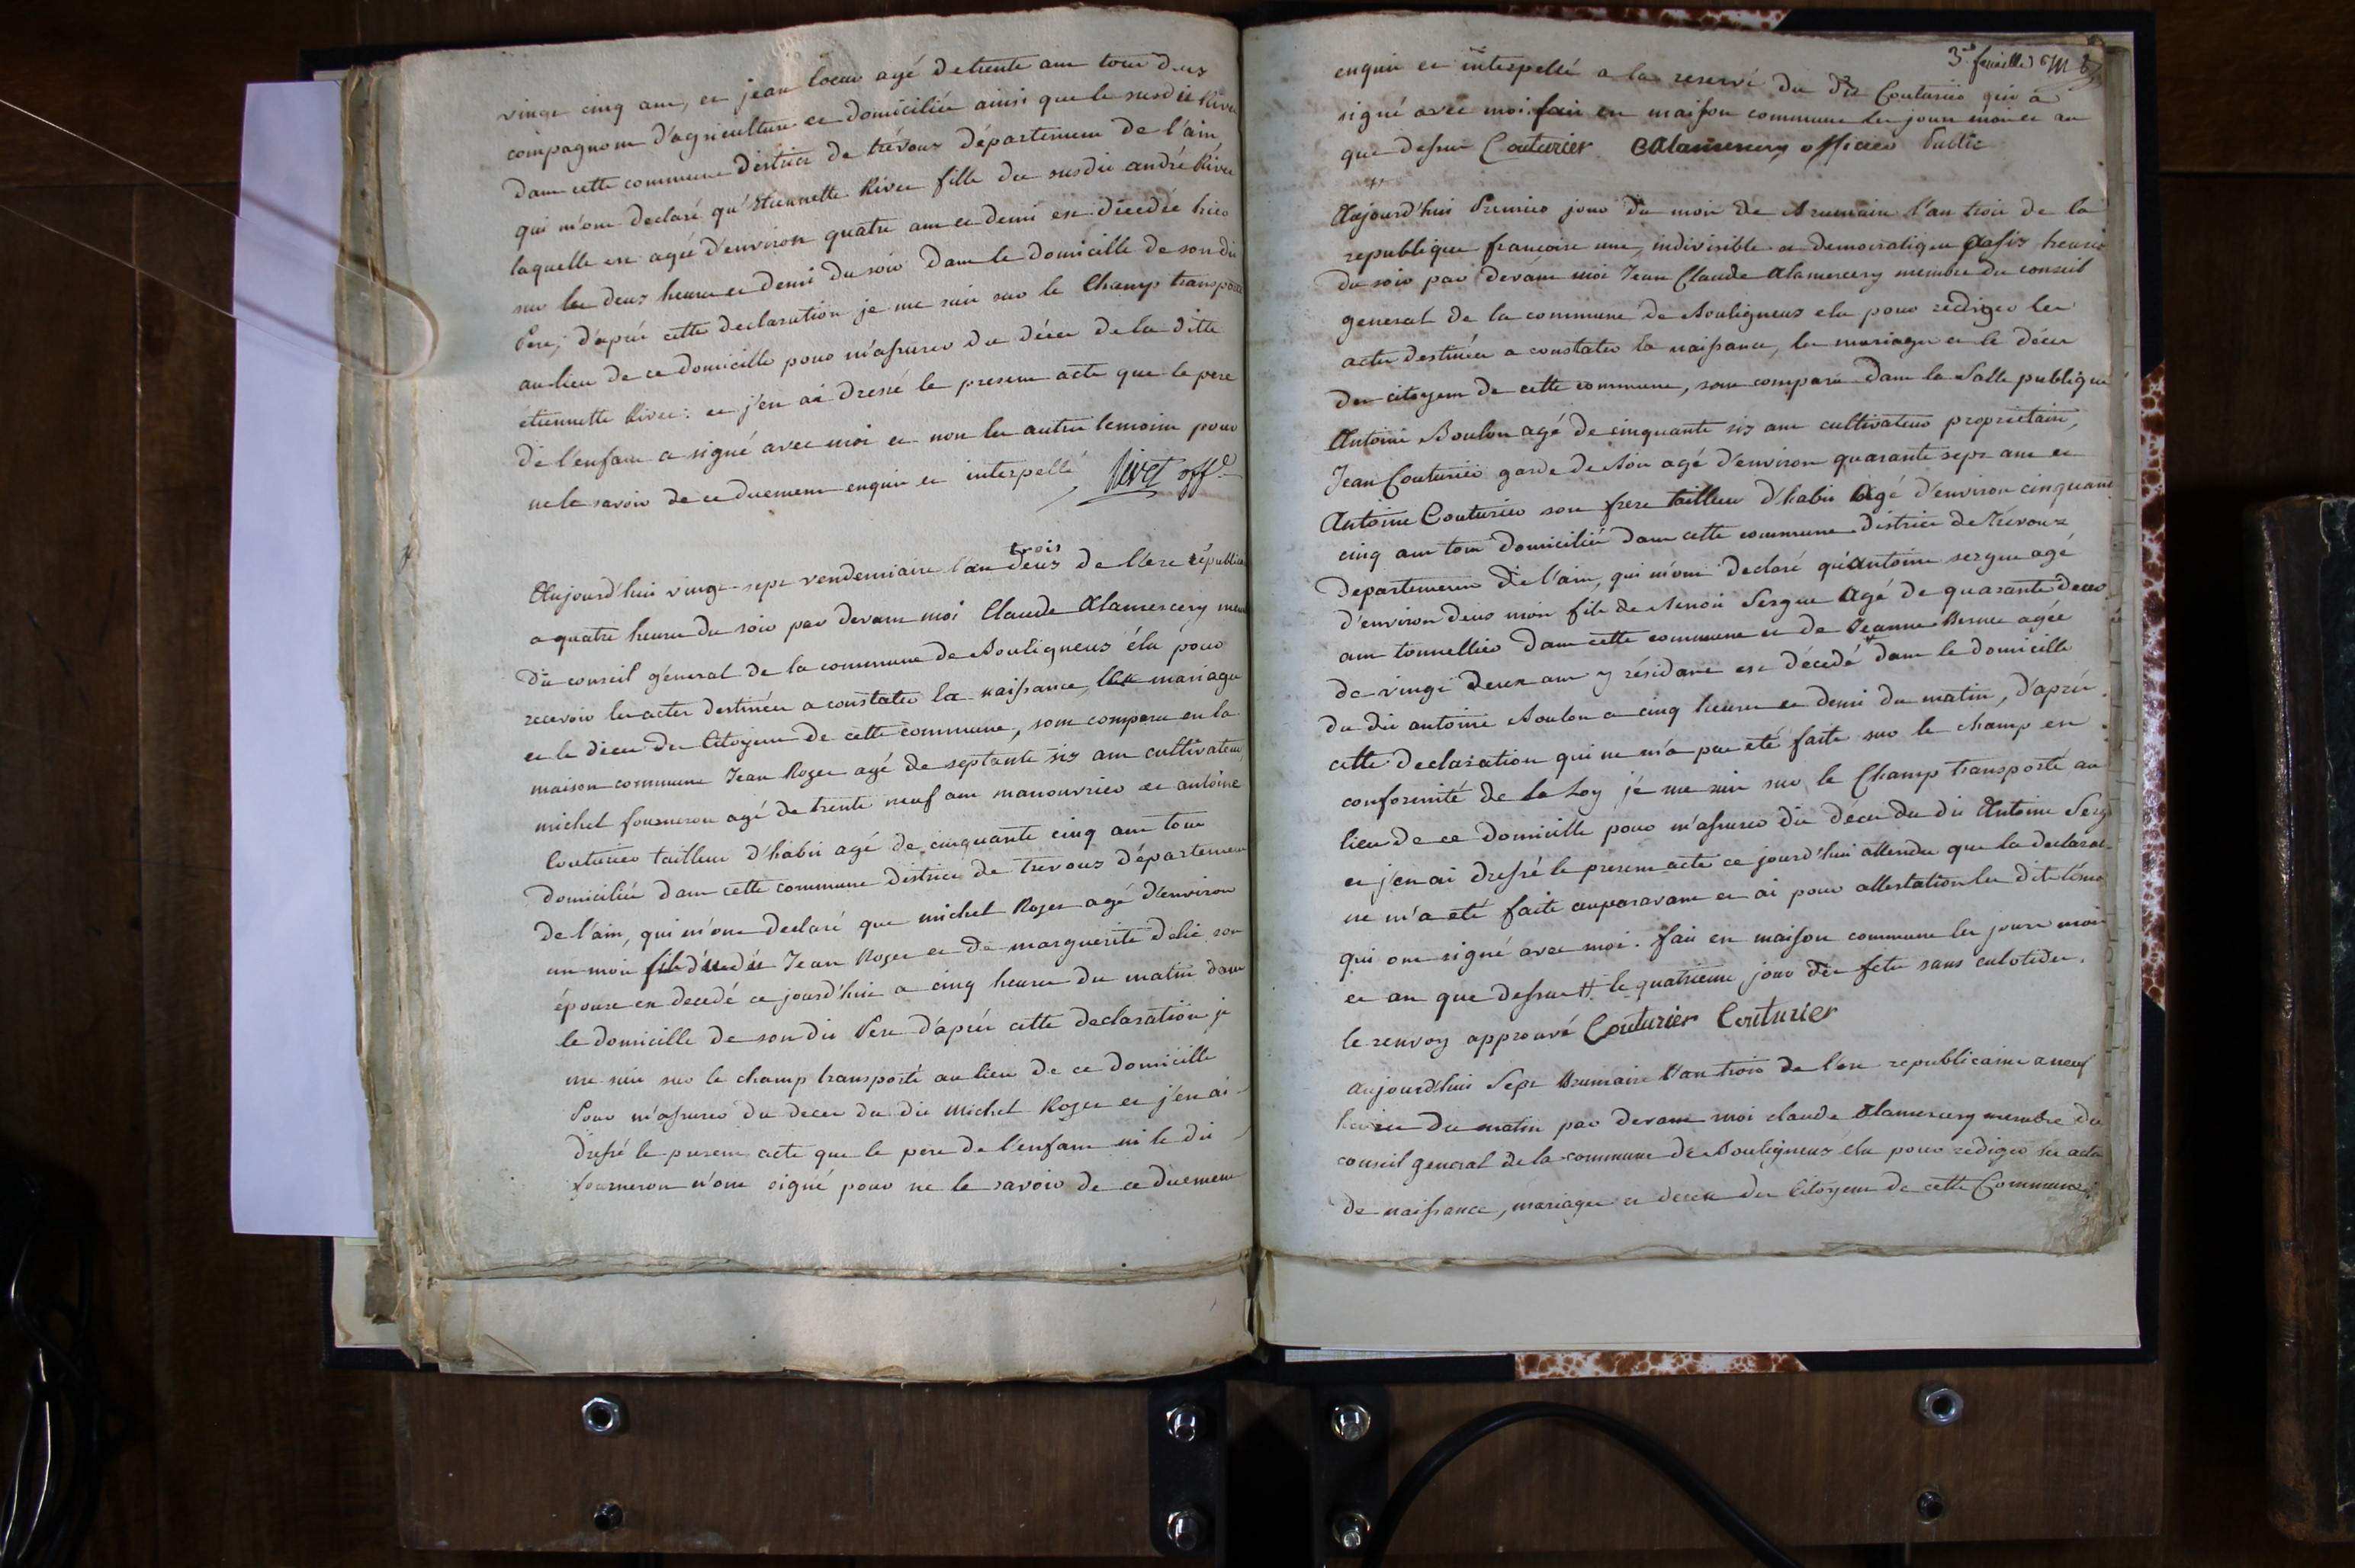 vingt cinq ans, et jean locau agé de trente ans tous deux
compagnons d'agriculture et domiciliés ainsi que le susdit Rivet
dans cette commune district de trévoux département de l'ain
qui m'ont declaré qu'Etiennette Rivet fille du susdit andré Rivet
laquelle est agée d'environ quatre ans et demi est décedée hier
sur les deux heures et demi du soir dans le domicille de son dit
Pere, d'après cette declaration je me suis sur le Champ transporté
au lieu de ce domicille pour m'assurer du décès de la ditte
étiennette Rivet: et j'en ai dressé le present acte que le pere
de l'enfant a signé avec moi et non les autres temoins pour
ne le savoir de ce duement enquis et interpellé Rivet off.
Aujourd'hui vingt-sept vendemiaire l'an deux trois de l'ere républicaine
a quatre heures du soir par devant moi Claude Alamercery membre
du conseil général de la commune de Souligneux élu pour
recevoir les actes destinés a constater la naissance, les mariages
et le décès des Citoyens de cette commune, sont comparu en la
maison commune Jean Roger agé de septante six ans cultivateur,
michel fourneron agé de trente neuf ans manouvrier et antoine
Couturier tailleur d'habit agé de cinquante cinq ans tous
domiciliés dans cette commune district de trevoux département
de l'ain, qui m'ont declaré que michel Roger agé d'environ
un mois fils dudit Jean Roger et de marguerite délié son
épouse est decedé ce jourd'hui a cinq heures du matin dans
le domicille de son dit Pere d'après cette declaration je
me suis sur le champ transporté au lieu de ce domicille
Pour m'assurer du decès du dit michel Roger et j'en ai
dressé le present acte que le pere de l'enfant ni le dit
fourneron n'ont signé pour ne le savoir de ce duement
3e feuillet
enquis et interpellé a la reserve du dit Couturier qui a
signé avec moi. fait en maison commune les jours mois et an
que dessus Couturier CAlamercery officier Public
Aujourd'hui Premier jour du mois de Brumaire l'an trois de la
republique françoise une, indivisible et democratique a six heures
du soir par devant moi Jean Claude Alamercery membre du conseil
general de la commune de Souligneux elu pour rédiger les
actes destinés a constater la naissance, les mariages et le décès
des citoyens de cette commune, sont comparu dans la Salle publique
Antoine Boulon agé de cinquante six ans cultivateur propriétaire,
Jean Couturier garde de bois agé d'environ quarante sept ans et
Antoine Couturier son frere tailleur d'habit Agé d'environ cinquante
cinq ans tous domiciliés dans cette commune district de Trévoux
departement de l'ain, qui m'ont declaré qu'Antoine sergue agé
d'environ deux mois fils de benoit Sergue Agé de quarante deux
ans tonnellier dans cette commune et de Jeanne Bernu agée
de vingt deux ans y résidant est décedé # dans le domicille
du dit antoine Boulon a cinq heures et demi du matin, d'après
cette declaration qui ne m'a pas eté faite sur le champ en
conformité de la Loy je me suis sur le Champ transporté au
lieu de ce domicille pour m'assurer du décès du dit Antoine Serg
et j'en ai dressé le present acte ce jourd'hui attendu que la declarat
ne m'a eté faite auparavant et ai pour attestation les dits témo
qui ont signé avec moi. fait en maison commune les jours mois
et an que dessus # le quatrieme jour des fetes sans culotides.
le renvoy approuvé Couturier Couturier
aujourd'hui Sept Brumaire l'an trois de l'ere republicaine a neuf
heures du matin par devant moi claude Alamercery membre du
conseil general de la commune de Souligneux élu pour rediger les actes
de naissance, mariages et decès des Citoyens de cette Commune,